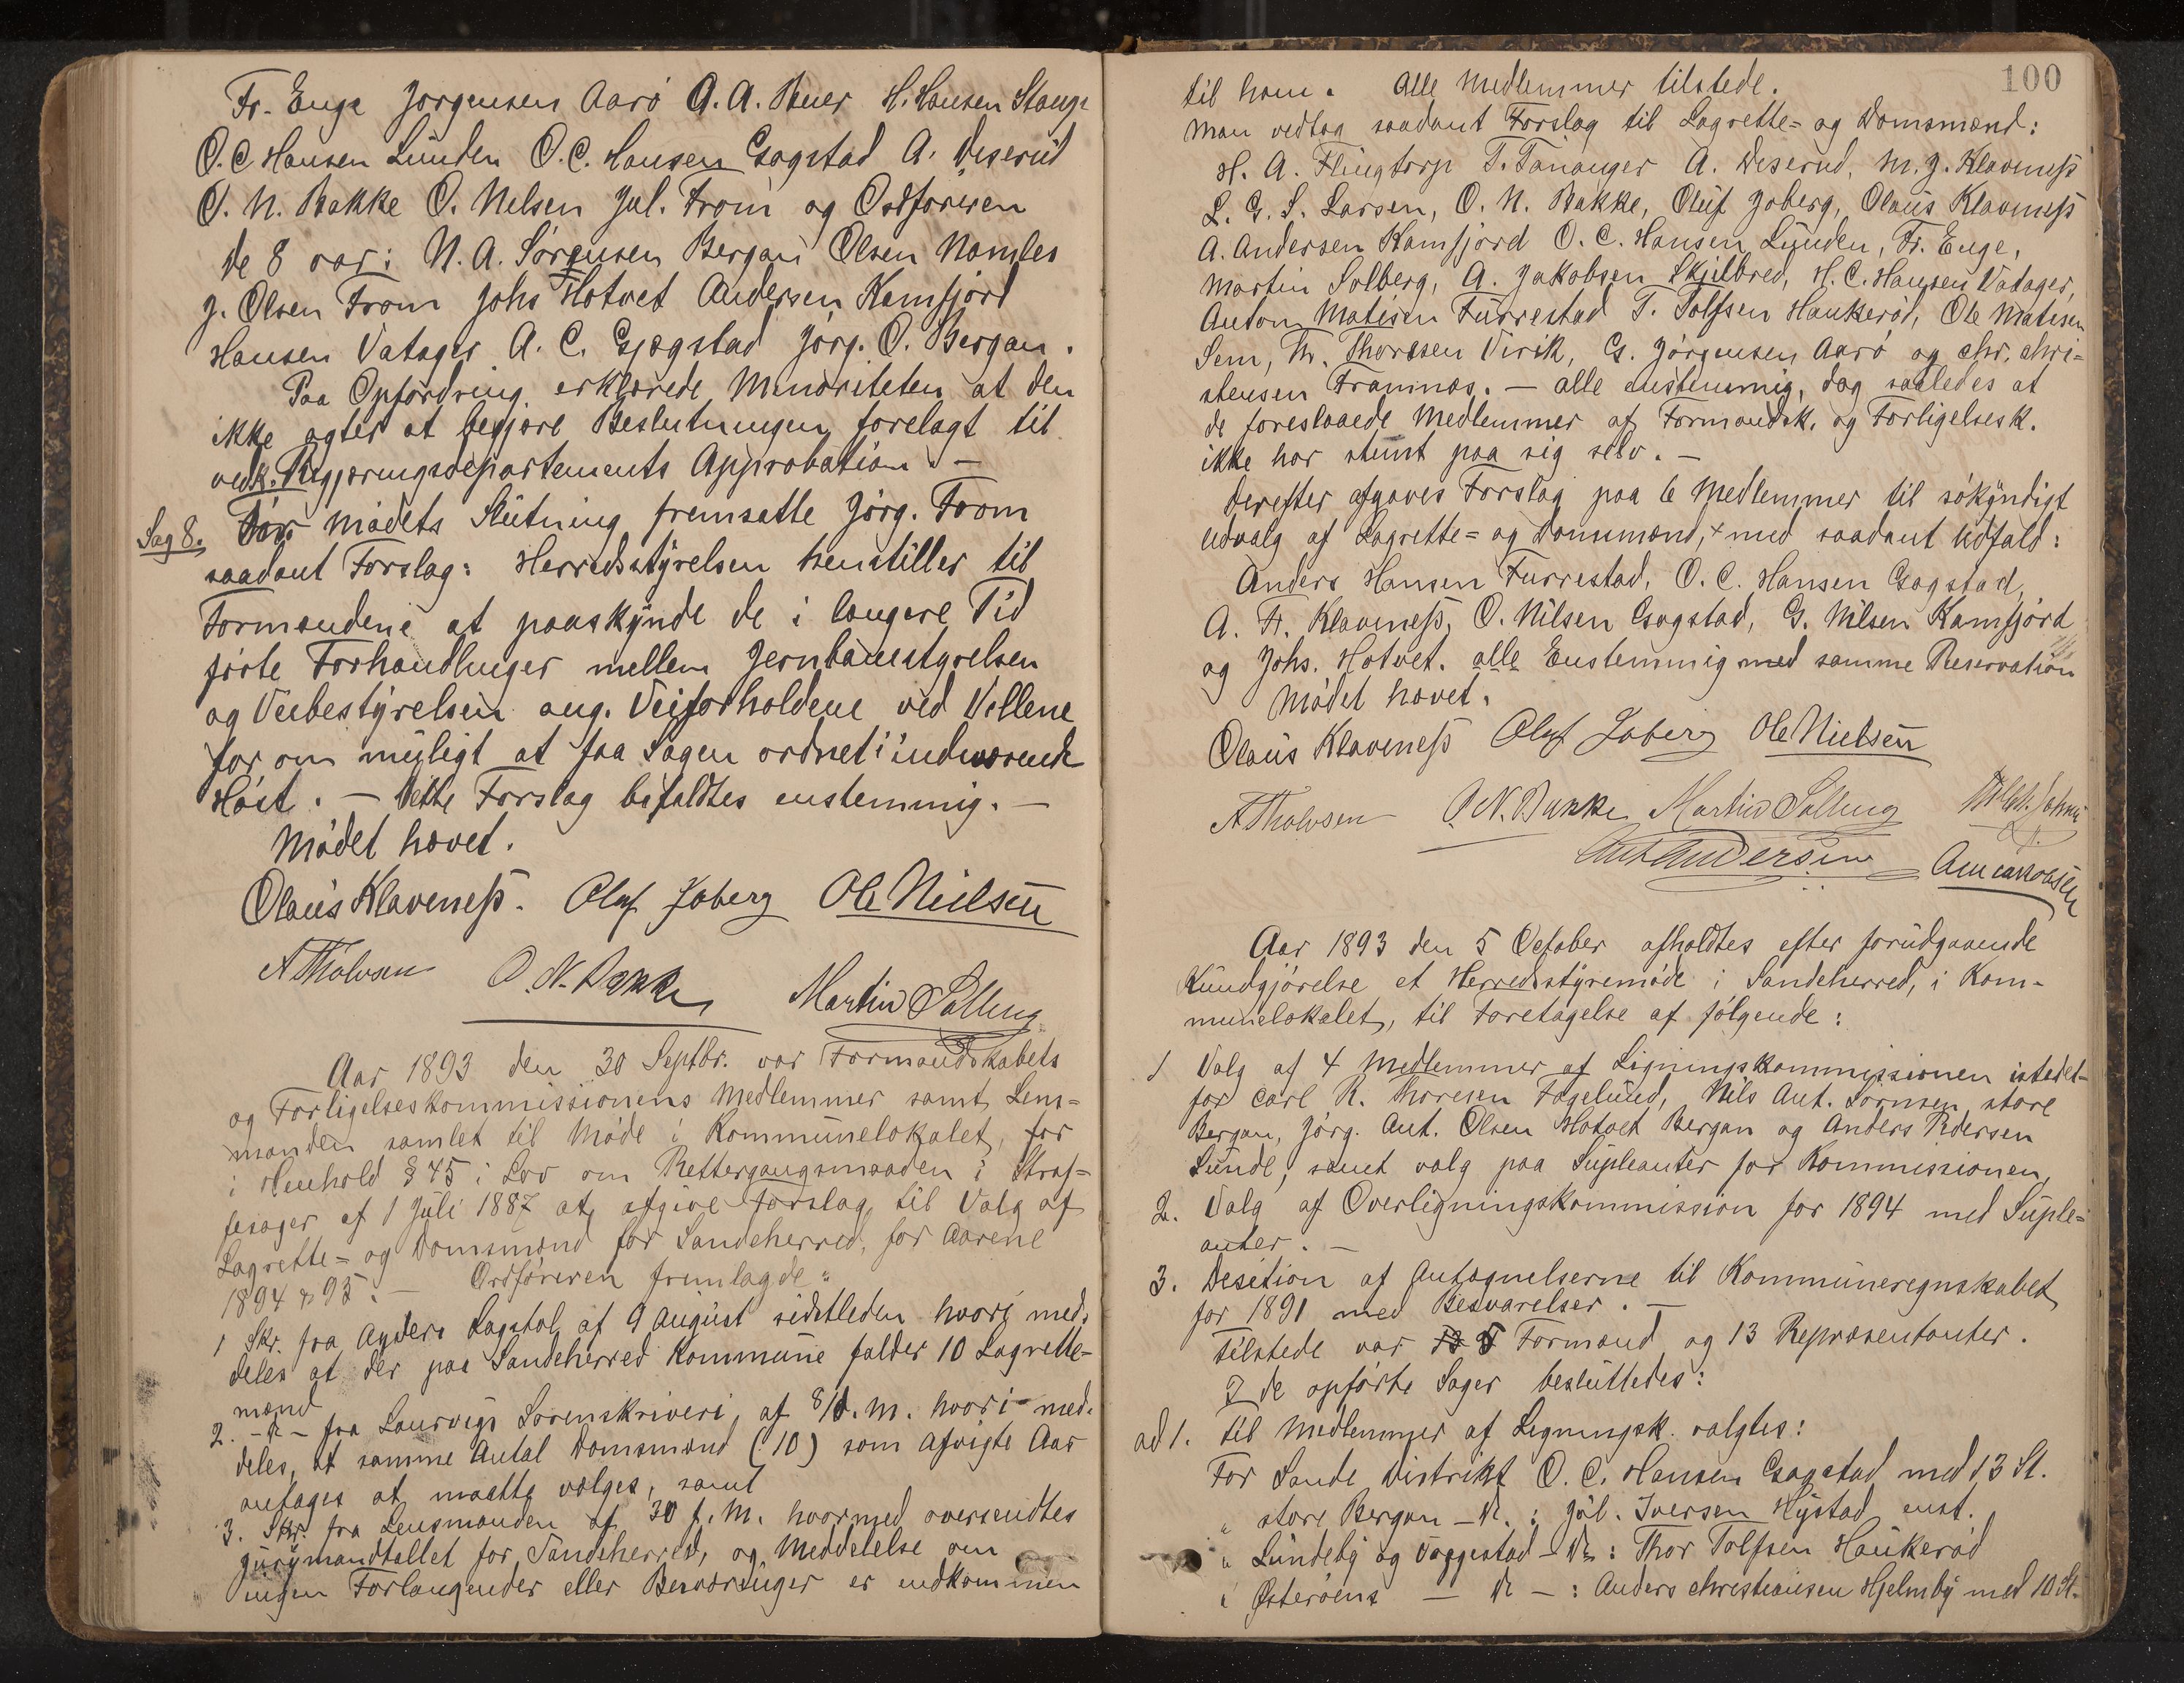 Fr. Enge Jørgensen Aarø A. A. Buer H. Hansen Stange
O. C. Hansen Lunden O. C. Hansen Gogstad A. Weserud
O. N. Bakke O. Nilsen Jul. From og Ordføreren
De 8 var: N. A. Sørensen Bergan Olsen Namløs
J. Olsen From Johs Hotvet Andersen Kamfjord
Hansen Vatager A. C. Gjøgstad Jørg. O. Bergan.
Paa Opfordring erklærede Minoriteten at den
ikke agter at begjære Beslutningen forelagt til
vedk. Regjeringsdepartements Approbation. —
Sag 8. Før Mødets Slutning fremsatte Jørg. From
saadant Forslag: Herredsstyrelsen henstiller til
Formændene at paaskynde de i længere Tid
førte Forhandlinger mellem Jernbanestyrelsen
og Veibestyrelsen ang. Veiforholdene ved Vellene
for om muligt at faa Sagen ordnet i indværende
Høst. — Dette Forslag bifaldtes enstemmig. —
Mødet hævet.
Olaus Klaveness. Oluf Joberg Ole Nielsen
A Tholvsen O. N. Bakke Martin Solberg
Aar 1893 den 30 Septbr. var Formandskabets
og Forligelseskommissionens Medlemmer samt Lens=
manden samlet til Møde i Kommunelokalet, for
i Henhold § 45 i Lov om Rettergangsmaaden i Straf=
fesager af 1 Juli 1887 at afgive Forslag til Valg af
Lagrette= og Domsmænd for Sandeherred, for Aarene
1894 & 95. — Ordføreren fremlagde:
1 Skr. fra Agders Lagstol af 9 August sidstleden hvori med=
deles at der paa Sandeherred Kommune falder 10 Lagrette=
mænd
2. — do — fra Laurvigs Sorenskriveri af 8/d. M. hvori med=
deles, at samme Antal Domsmænd (10) som afvigte Aar
antages at maatte vælges, samt
3. Skr. fra Lensmanden af 30 f. M. hvormed oversendtes
Jurymandtallet for Sandeherred, og Meddelelse om
ingen Forlangender eller Besværinger er indkommen
100
til ham. Alle Medlemmer tilstede.
Man vedtog saadant Forslag til Lagrette= og Domsmænd:
H. A. Flingtorp T. Tananger A. Weserud, M. J. Klaveness
L. G. S. Larsen, O. N. Bakke, Oluf Joberg, Olaus Klaveness
A. Andersen Kamfjord O. C. Hansen Lunden, Fr. Enge,
Martin Solberg, A. Jakobsen Skjelbred, H. C. Hansen Vatager,
Anton Matisen Furrestad T. Tolfsen Haukerød, Ole Matisen
Sem, M. Thoresen Virik, G. Jørgensen Aarø og Chr. Chri=
stensen Framnæs. — alle enstemmig, dog saaledes at
de foreslaaede Medlemmer af Formandsk. og Forligelsesk.
ikke har stemt paa sig selv. —
Derefter afgaves Forslag paa 6 Medlemmer til søkyndigt
Udvalg af Lagrette= og Domsmænd, + med saadant Udfald:
Anders Hansen Furrestad, O. C. Hansen Gogstad,
A. Fr. Klaveness, O. Nilsen Gogstad, G. Nilsen Kamfjord
og Johs. Hotvet. alle Enstemmig med samme Reservation
Mødet hævet.
Olaus Klaveness Oluf Joberg Ole Nielsen
A Tholvsen O. N. Bakke Martin Solberg
Ant Andersen
Aar 1893 den 5 October afholdtes efter forudgaaende
Kundgjørelse et Herredsstyremøde i Sandeherred, i Kom-
munelokalet, til Foretagelse af følgende:
1 Valg af 4 Medlemmer af Ligningskommissionen istedet-
for Carl R. Thoresen Fagelund, Nils Ant. Sørnsen store
Bergan, Jørg. Ant. Olsen Hotvet Bergan og Anders Pedersen
Lunde, samt valg paa Supleanter for Kommissionen,
2. Valg af Overligningskommission for 1894 med Suple=
anter. —
3. Desition af Antegnelserne til Kommuneregnskabet
for 1891 med Besvarelser. —
Tilstede var 5 Formænd og 13 Repræsentanter.
I de opførte Sager besluttedes:
ad 1. til Medlemmer af Ligningsk. valgtes:
For Sande Distrikt O. C. Hansen Gogstad med 13 St.
" store Bergan — do.: Jul. Iversen Hystad enst.
" Lundeby og Vaggestad — do: Thor Tolfsen Haukerød
" Østerøens — do — : Anders Christiansen Hjelmby med 10 St.